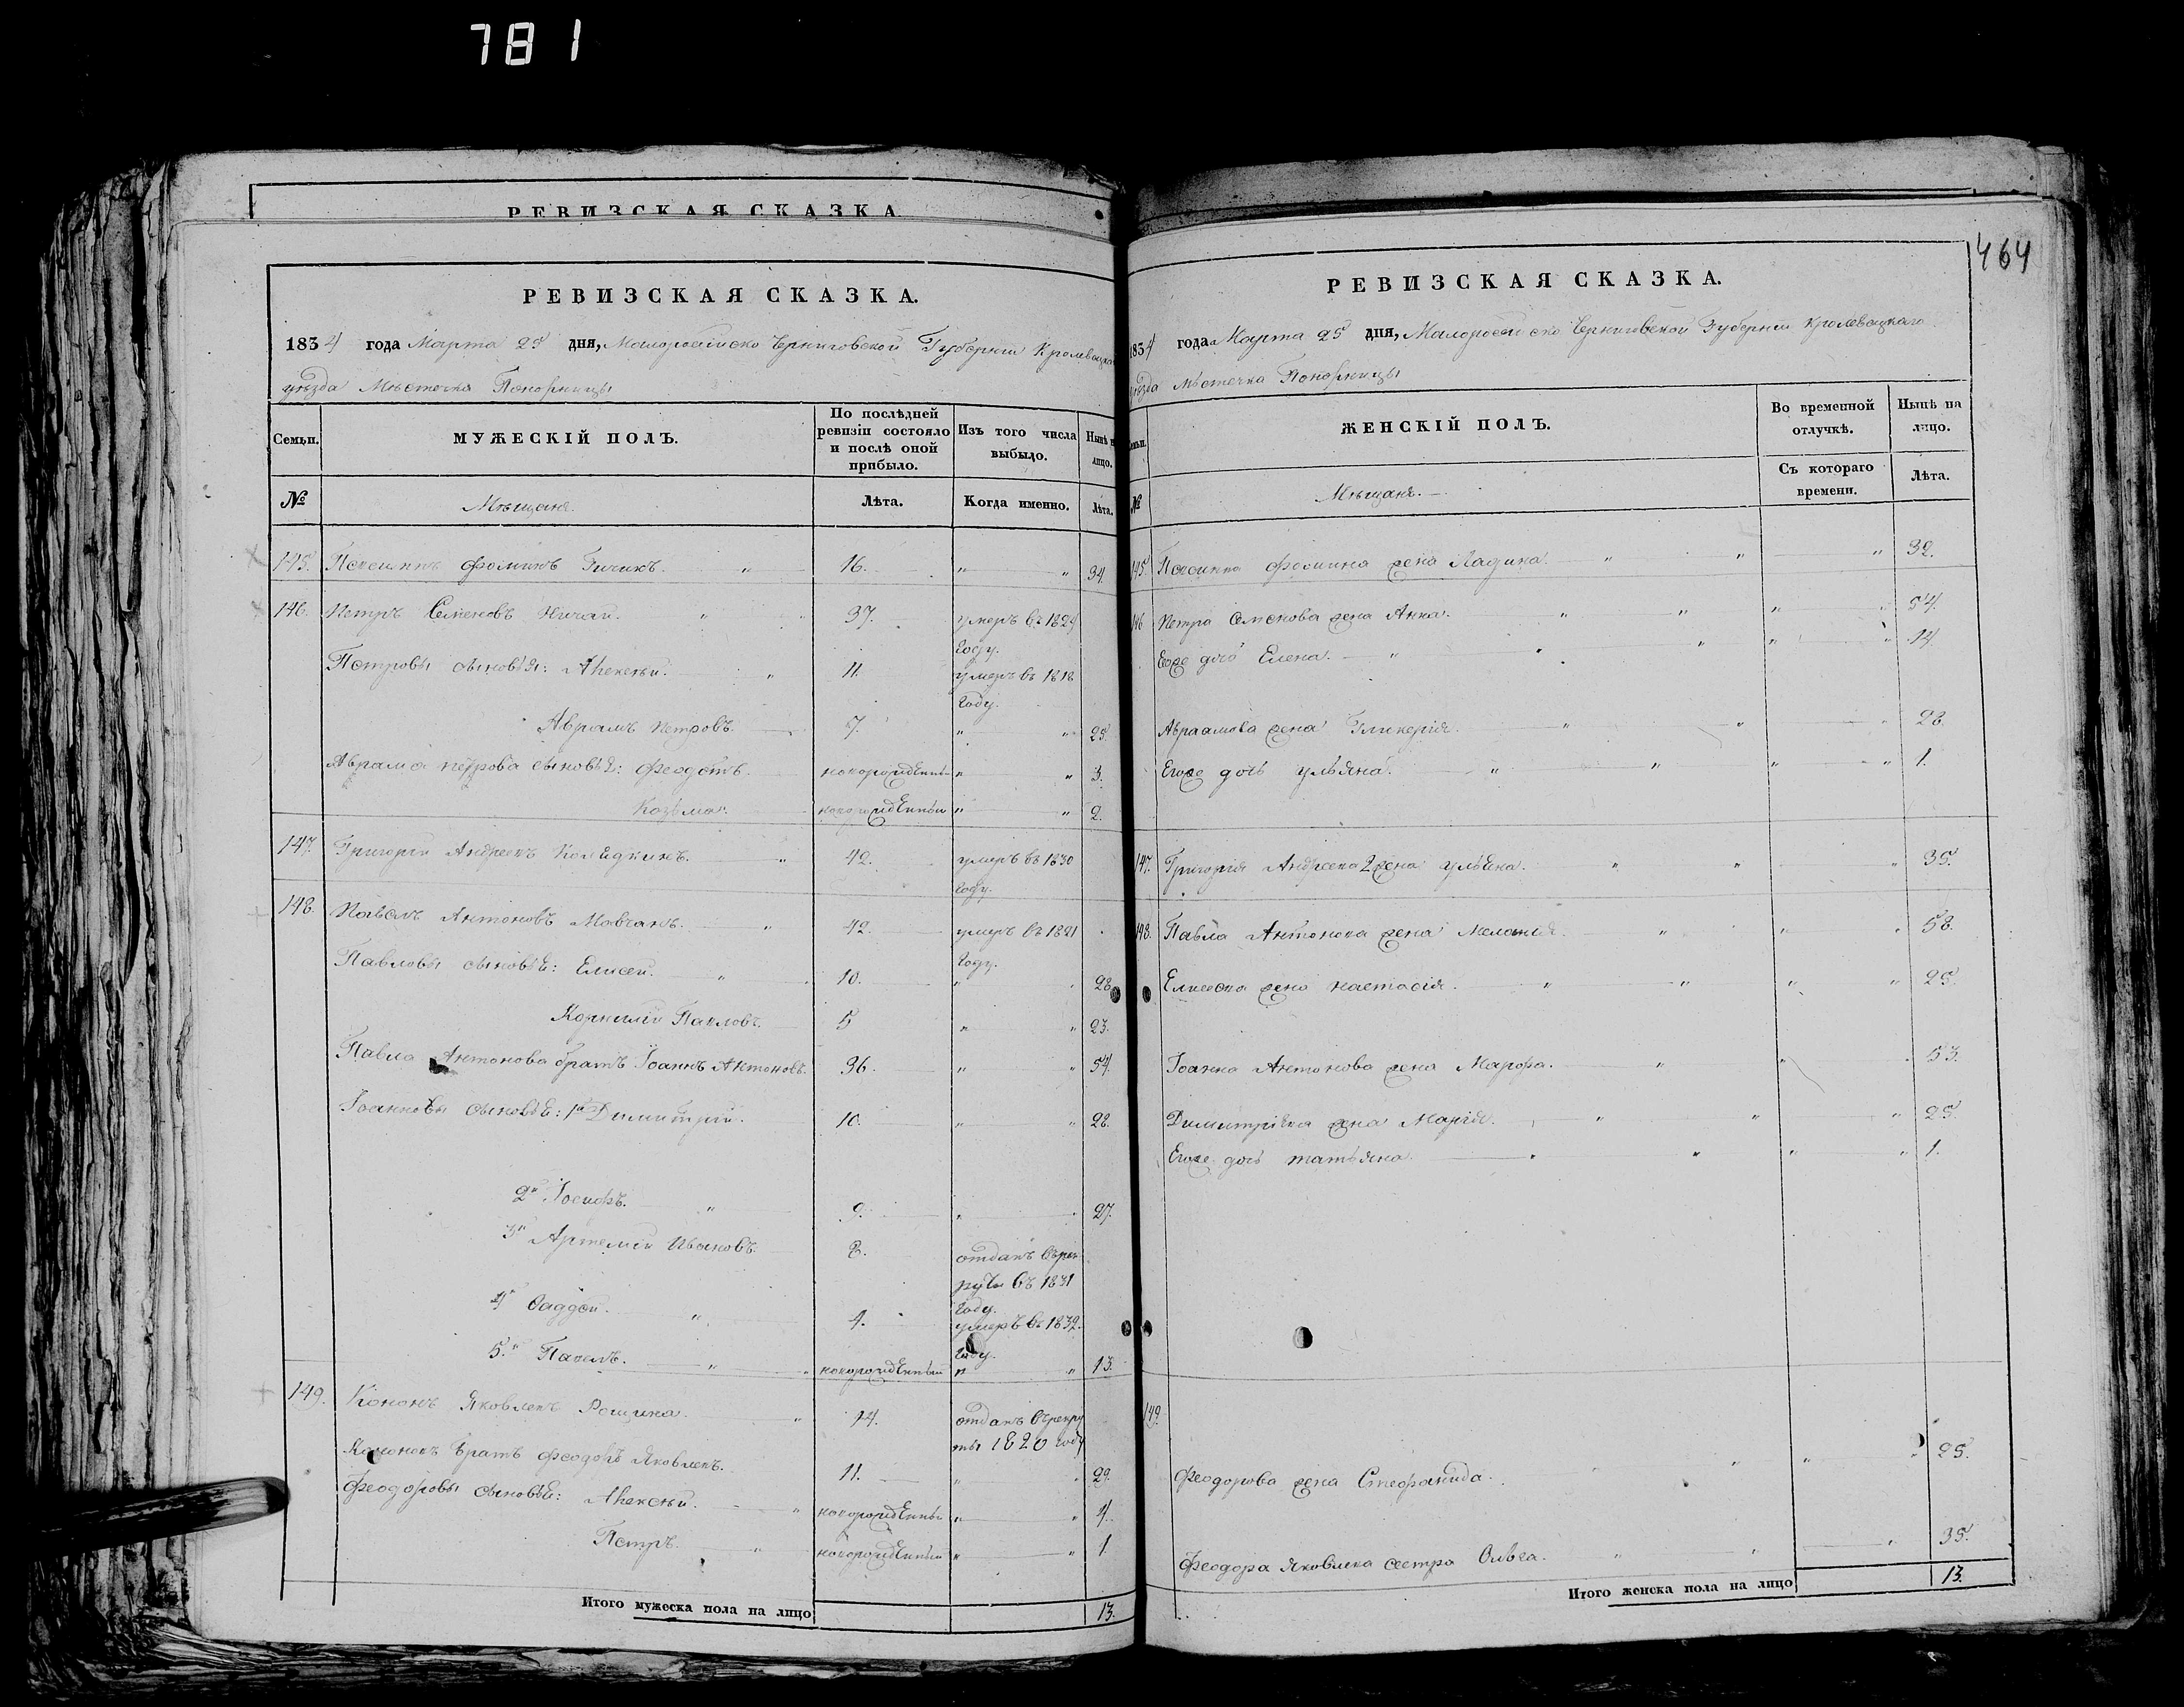 781
РЕВИЗСКАЯ СКАЗКА.
464
РЕВИЗСКАЯ СКАЗКА.
1834 года Марта 25 дня, Малороссийско Черниговской Губернии Кролевецкаго
уѣзда Мѣстечка Понорницы
Семьи. МУЖЕСКІЙ ПОЛЪ. По послѣдней ревизіи состояло и послѣ оной прибыло. Изъ того числа выбыло. Нынѣ на лицо.
№ Мѣщане. Лѣта. Когда именно. Лѣта.
145. Фоминъ 16. " " 34.
146. Петръ Семеновъ Ничай. " 37. умеръ въ 1829 году.
Петровы сыновья: Алексѣй. " 11. умеръ въ 1818 году.
Аврамъ Петровъ. 7. " " 25.
Аврама Петрова сыновья: Феодотъ. новорожденный " " 3.
Козьма. новорожденный " " 2.
147. Григорій Андреевъ " 42. умеръ въ 1830 году.
148. Павелъ Антоновъ Мовчанъ. " 42. умеръ въ 1821 году.
Павловы сыновья: Елисей. " 10. " " 28
Корнилій Павловъ. 5 " " 23.
Павла Антонова братъ Іоаннъ Антоновъ. 36. " " 54.
Іоанновы сыновья: 1й Димитрій. 10. " " 28.
2й Іосифъ. " 9. " " 27.
3й Артемій Ивановъ. 8. отданъ въ рекруты въ 1831 году.
4й Фаддей. " 4. умеръ въ 1832. году.
5.й Павелъ. " новорожденный " " 13.
149. Кононъ Яковлевъ Рощина. " 14. отданъ въ рекруты 1820 году
Кононовъ братъ Феодоръ Яковлевъ. 11. " " 29.
Феодоровы сыновья: Алексѣй. " новорожденный " " 4.
Петръ. " новорожденный " " 1
Итого мужеска пола на лицо 13.
РЕВИЗСКАЯ СКАЗКА.
1834 года Марта 25 дня, Малороссийско Черниговской Губерніи Кролевецкаго
уѣзда мѣстечка Понорницы
Семьи. ЖЕНСКІЙ ПОЛЪ. Во временной отлучкѣ. Нынѣ на лицо.
№ Мѣщане. Съ котораго времени. Лѣта.
145 Фомина жена " " " 32.
146 Петра Семенова жена Анна. " " " " 54.
Егоже дочь Елена. " " " " " 14
Авраамова жена Гликерія. " " " 28.
Егоже дочь Ульяна. " " " " 1.
147. Григорія Андреева 2 жена Ульяна. " " " 35.
148. Павла Антонова жена Меланія. " " " 58.
Елисеева жена Настасія. " " " " 25.
Іоанна Антонова жена Марфа. " " " 53.
Димитріева жена Марія. " " " 25.
Егоже дочь Татьяна. " " " " 1.
149.
Феодорова жена Стефанида. " " " " 25.
Феодора Яковлева сестра Ольга. " " " 35.
Итого женска пола на лицо 13.